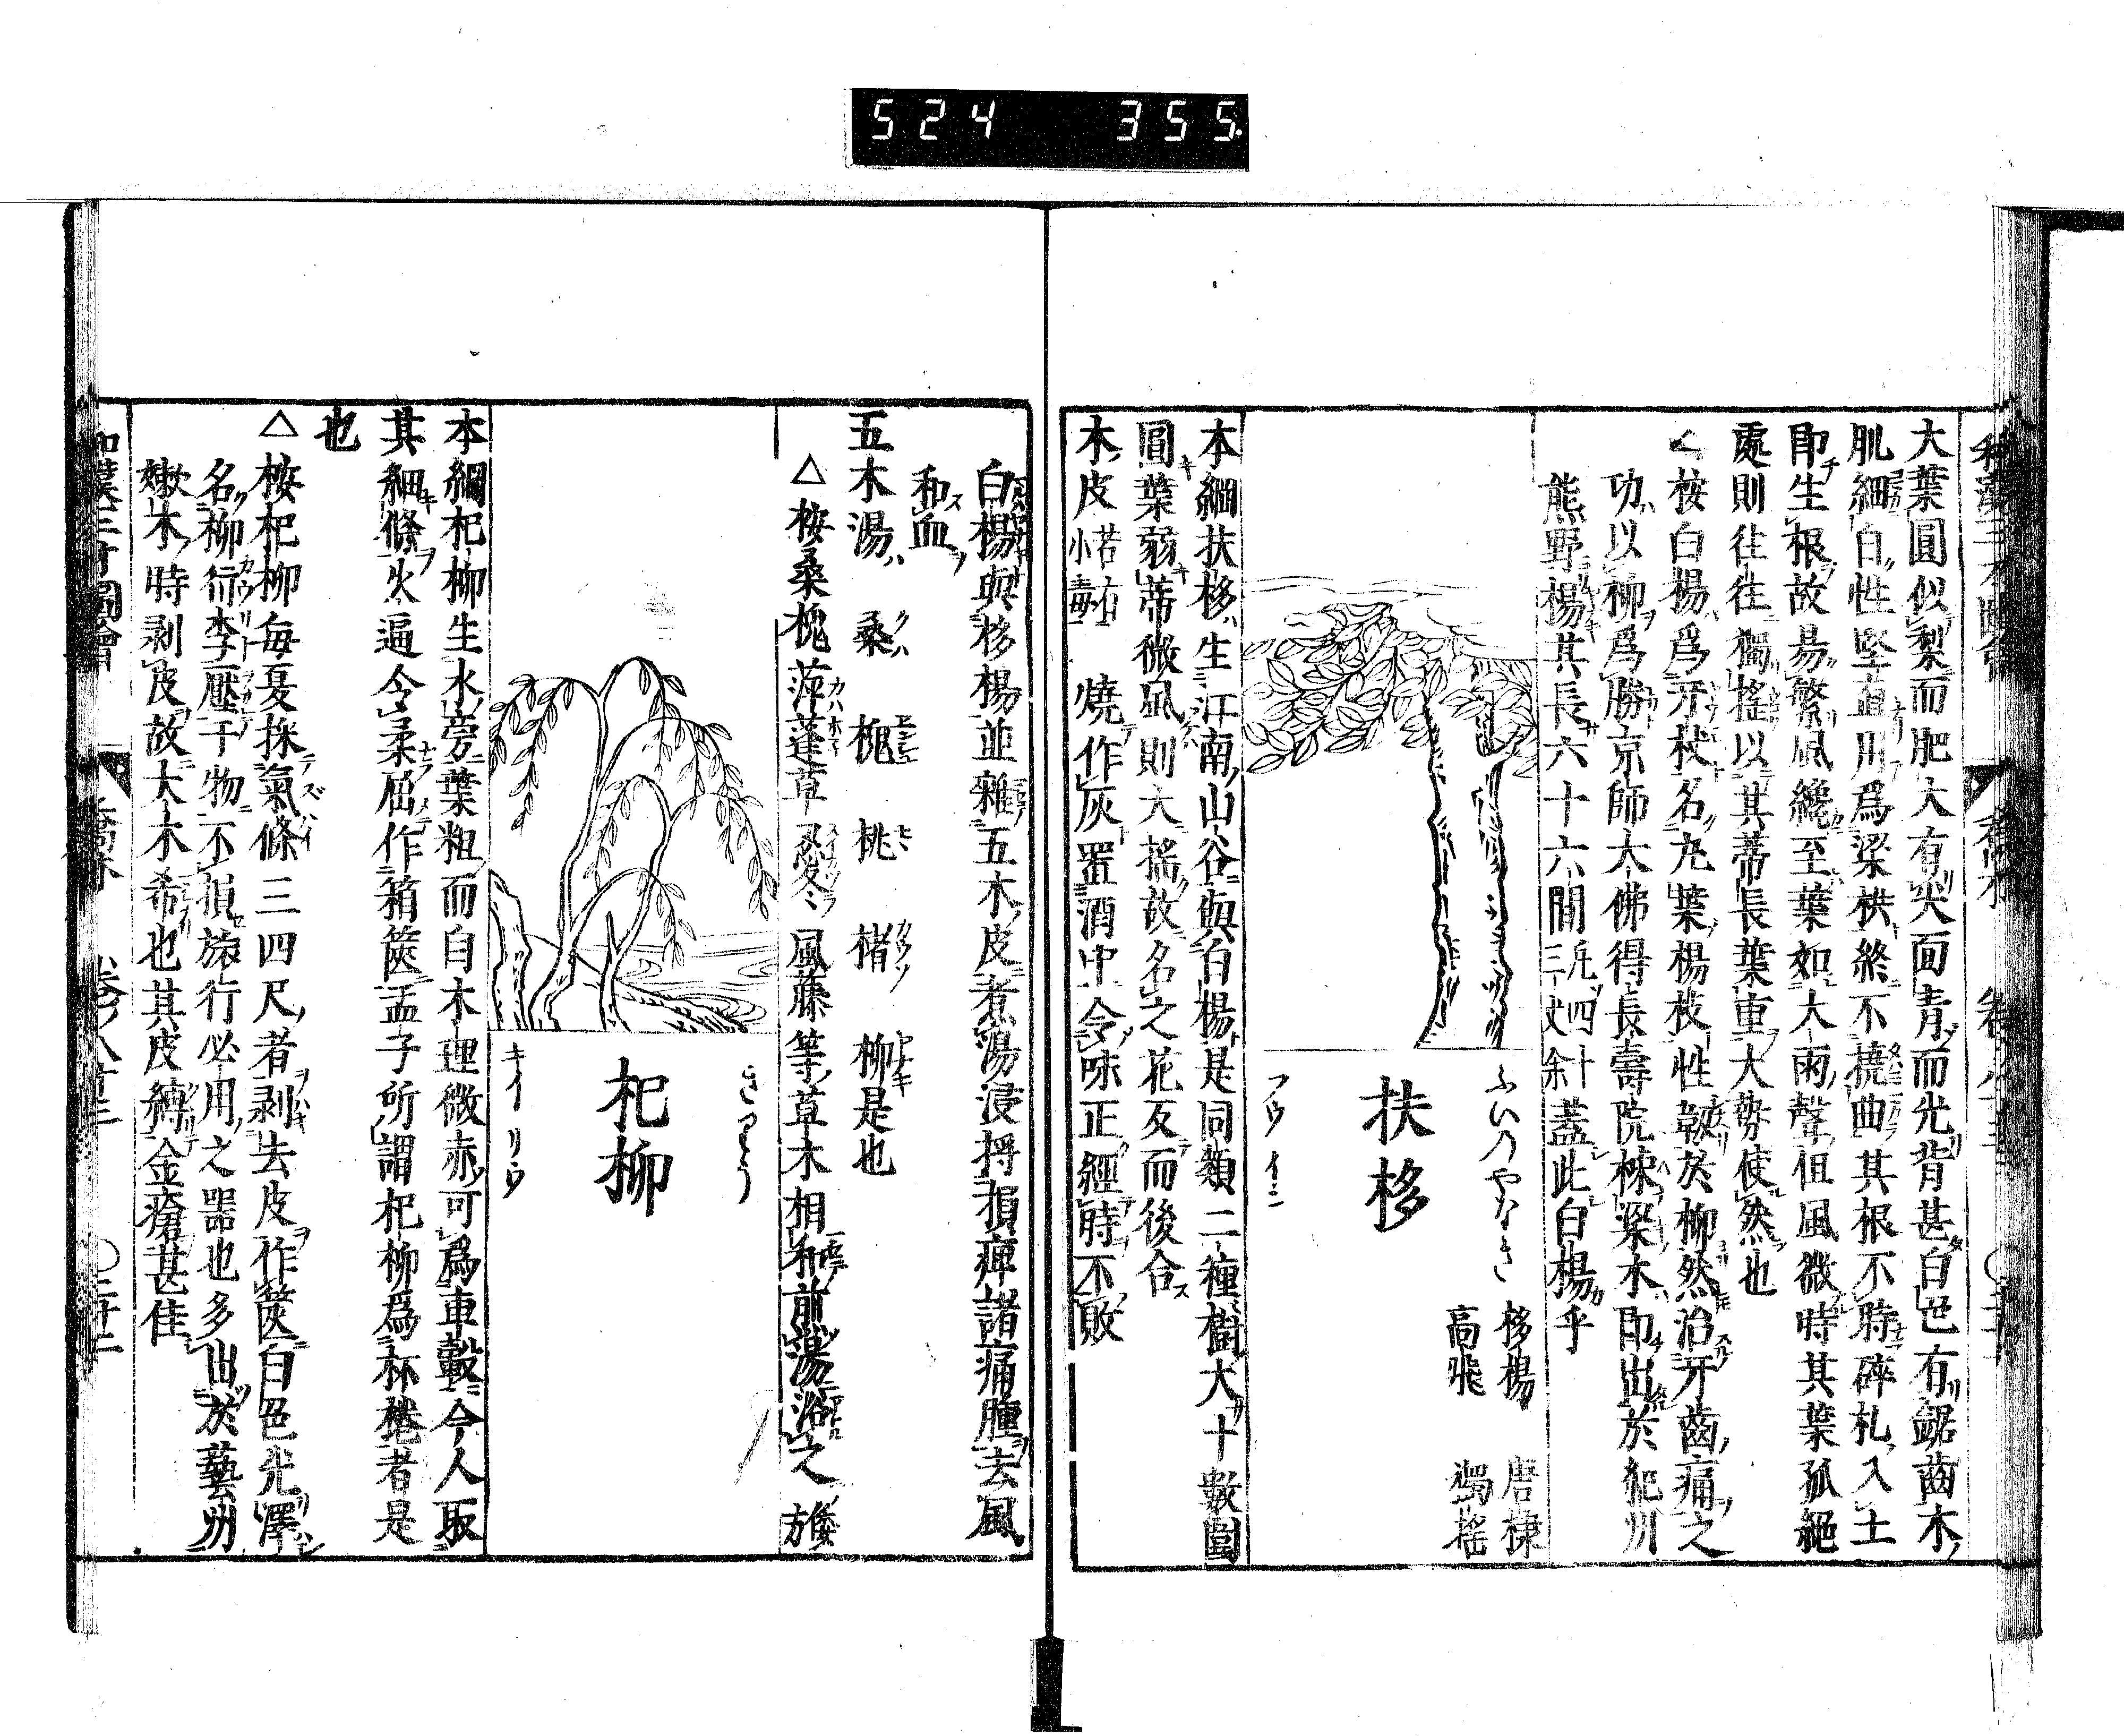 524 355
大葉圓似梨而肥大有尖面青而光背甚白色有鋸齒木
肌細白性堅直用爲梁栱終不撓曲其根不時碎札入土
即生根故昜繁風纔至葉如大雨聲但風微時其葉孤絕
處則徃徃獨搖以其蒂長葉重大勢使然也
△按白楊爲牙杖名丸葉楊枝性韌於柳然治牙齒痛之
功以柳爲勝京師大佛得長壽院棟梁木即出於紀州
熊野楊其長六十六間三尺四寸
蓋此白楊乎
ふいのやなき
扶栘
フウ イニ
栘楊 唐棣
高飛 獨搖
本綱扶栘生江南山谷與白楊是同類二種樹大十數圍
圓葉弱蒂微風則大搖故名之花反而後合
木皮 苦
小毒 燒作灰置酒中令味正經時不敗
白楊與栘楊並雜五木皮煮湯浸捋損痺諸痛腫去風
和血
五木湯 桑 槐 桃 楮 柳是也
△按桑槐萍蓬草忍冬風藤等草木相和煎湯浴之
きりう
杞柳
キイ リウ
本綱杞柳生水旁葉粗而白木理微赤可爲車轂今人取
其細條火逼令柔屈作箱篋孟子所謂杞柳爲杯棬者是
也
△按杞柳毎夏採氣條三四尺者剥去皮作篋白色光澤
名柳行李壓干物不損旅行必用之噐也多出於藝州
嫩木時剥皮故大木希也其皮縛金瘡甚佳